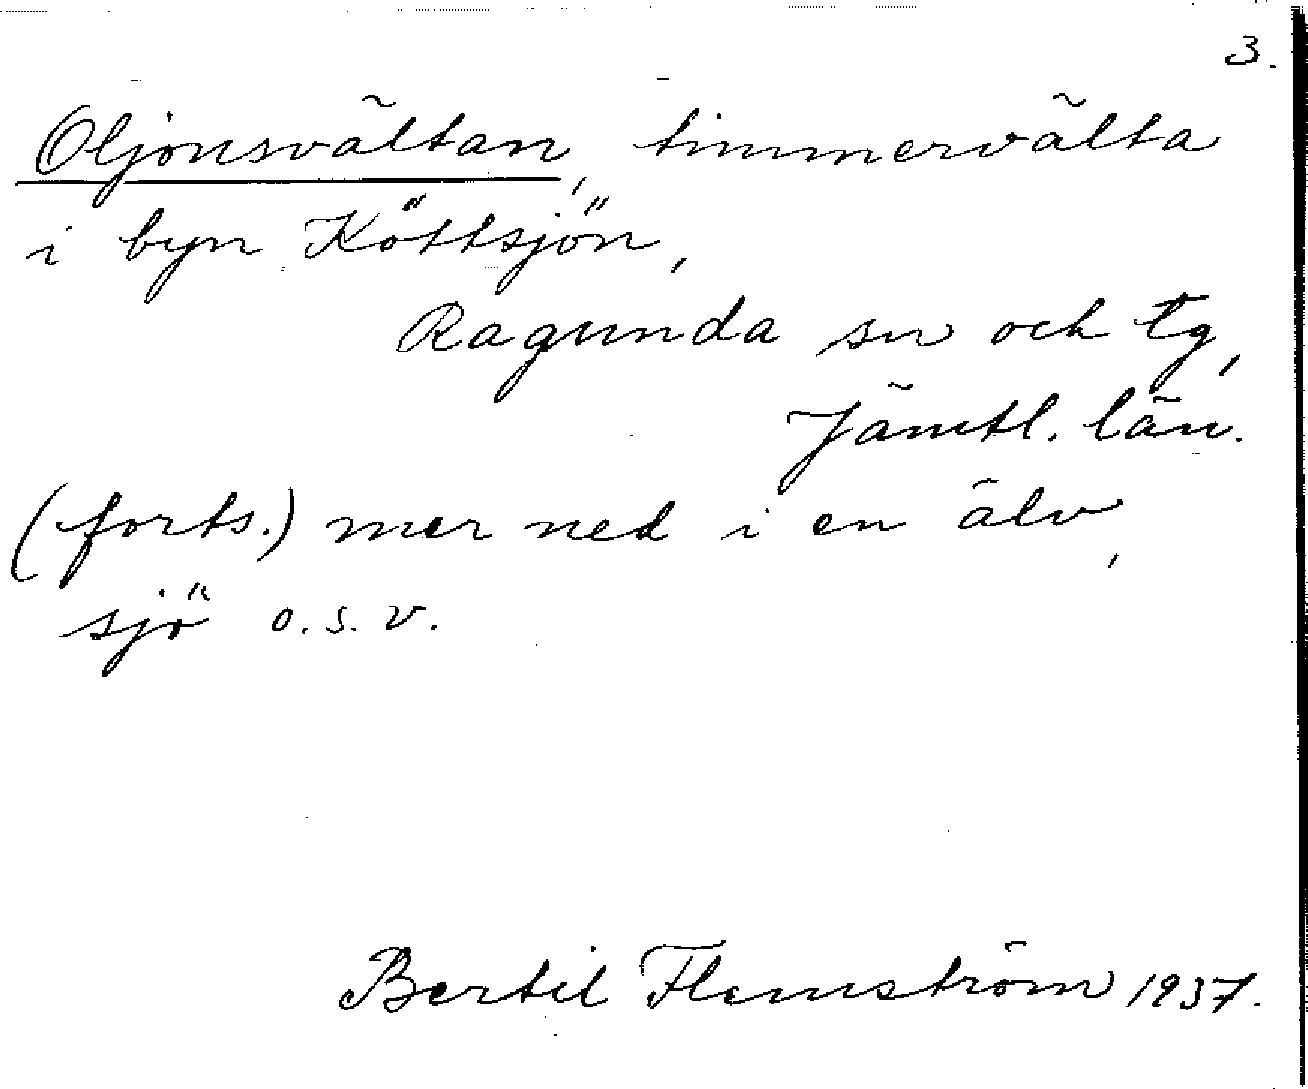 3.
Oljonsvältan, timmervälta
i byn Köttsjön,
Ragunda sn och tg,
Jämtl. län.
(forts.) mer ned i en älv,
sjö o.s.v.
Bertil Flemström 1937.